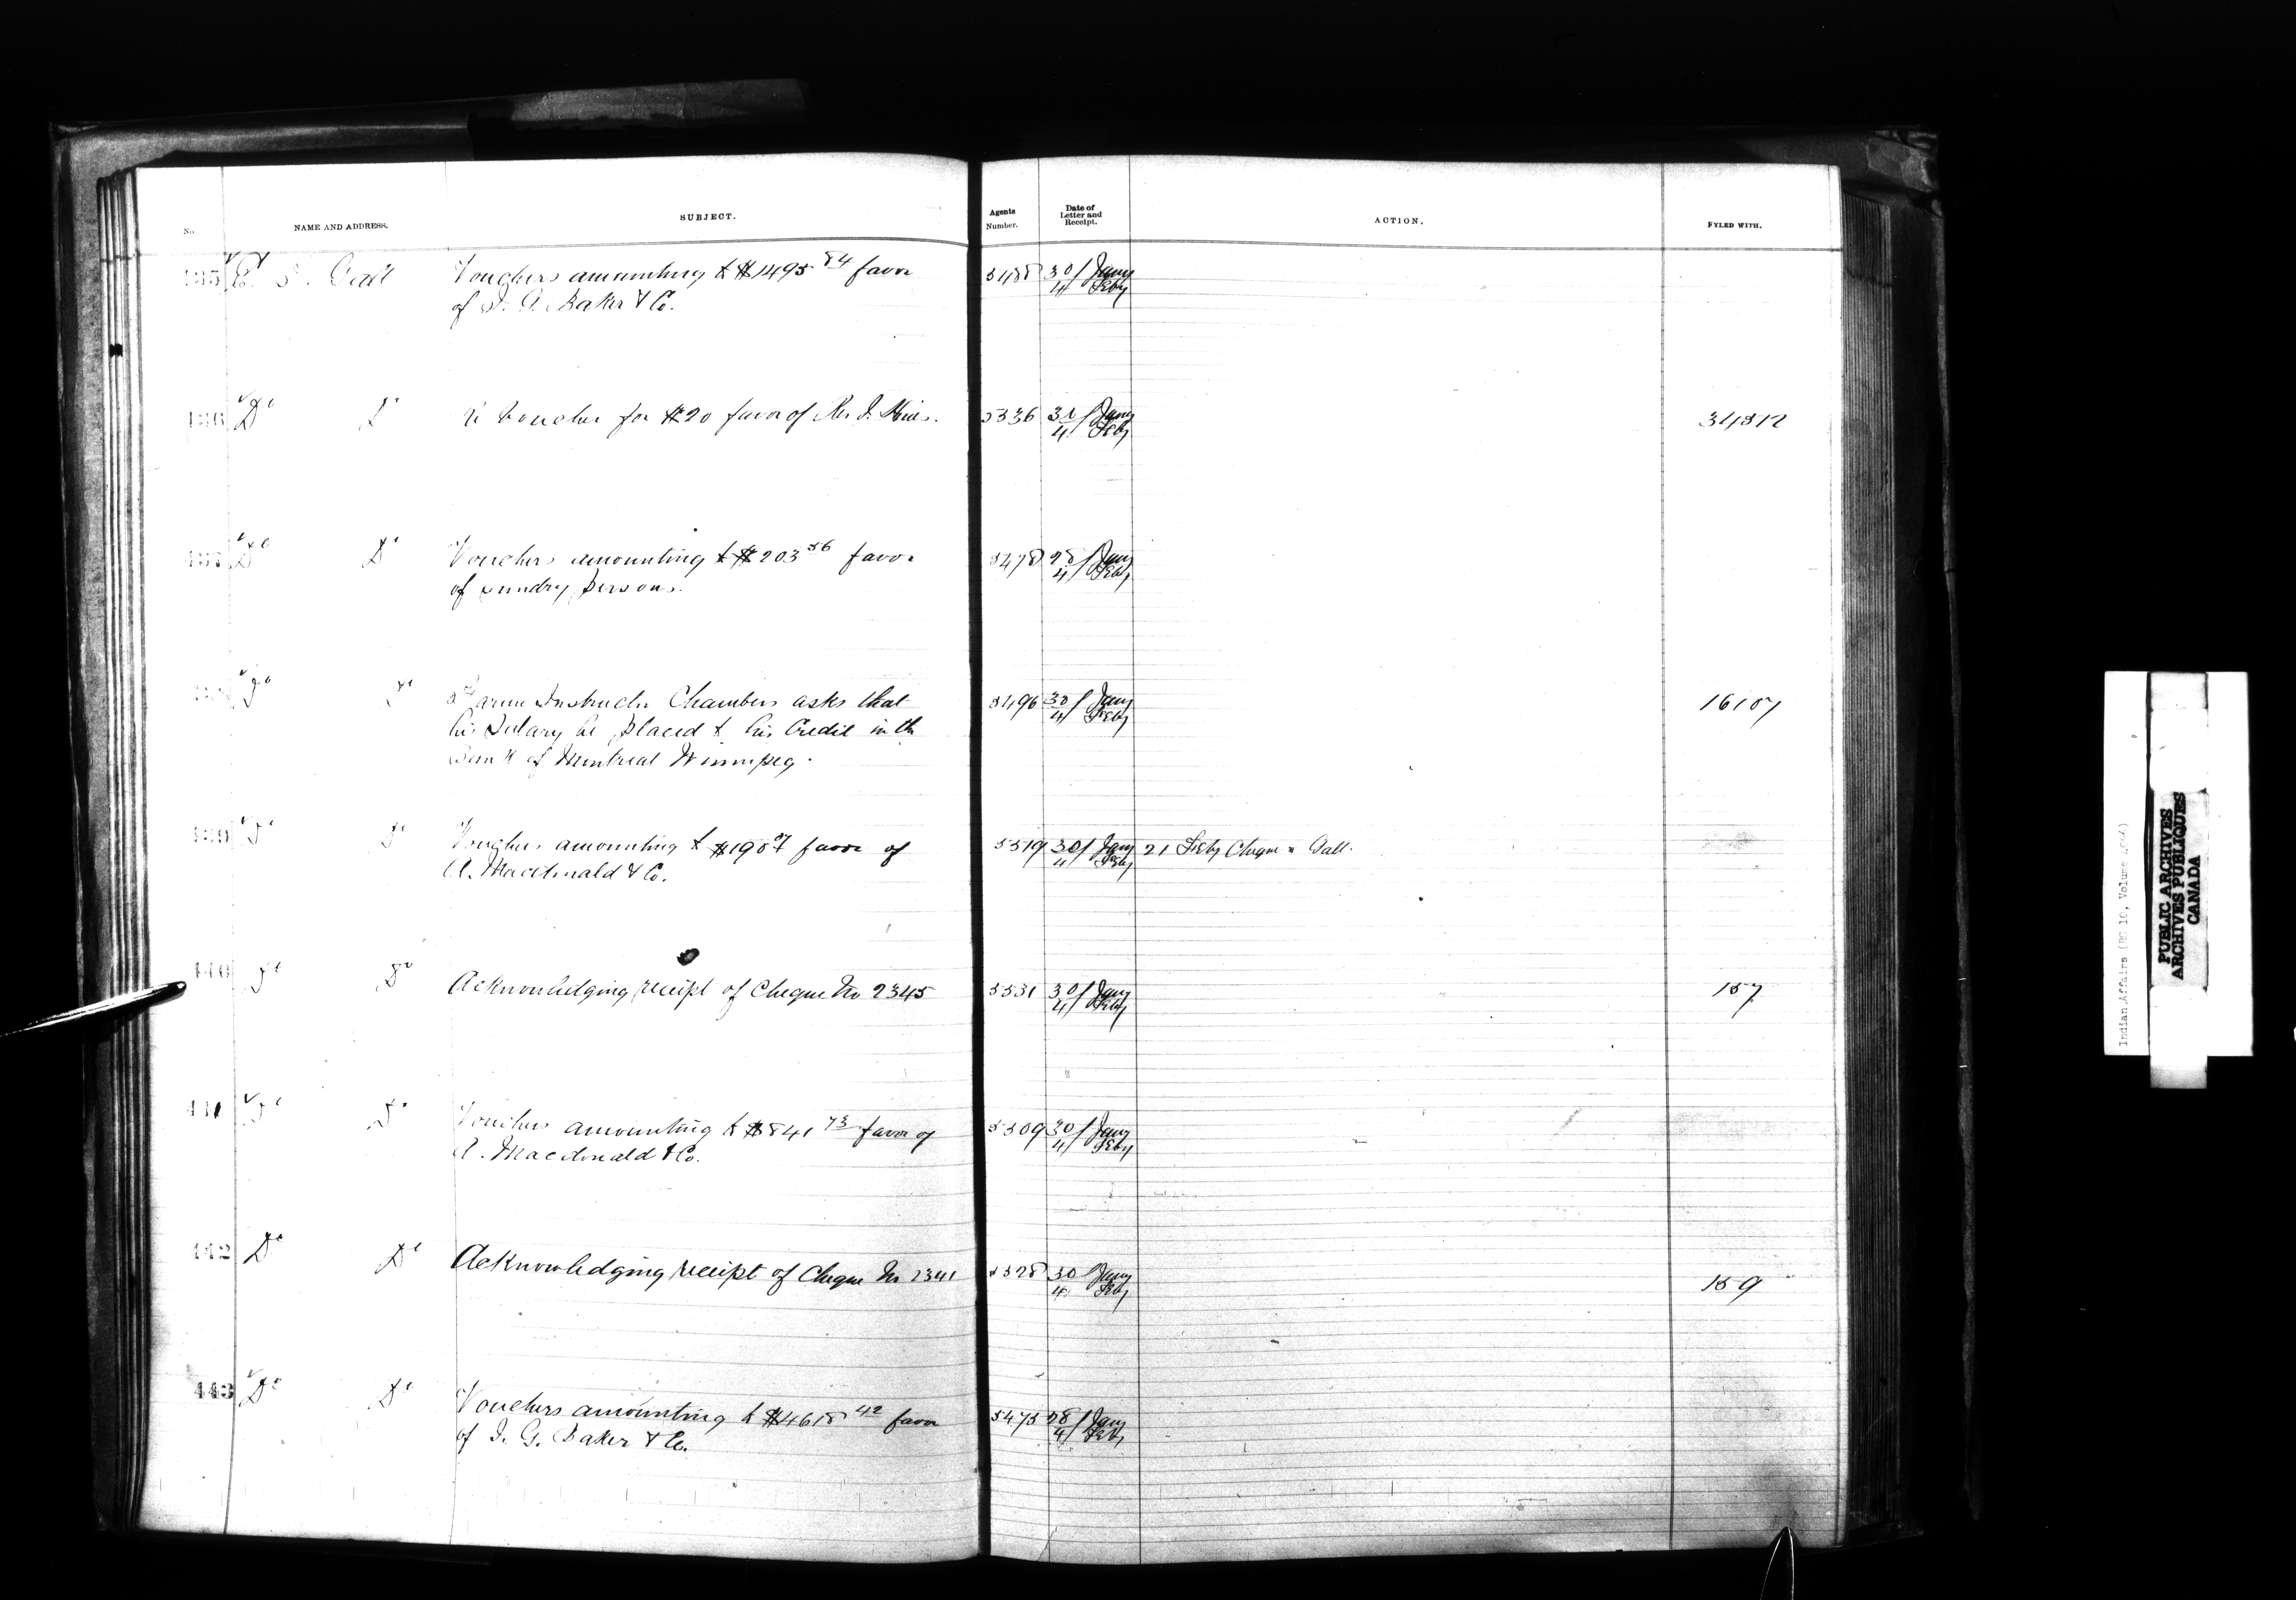 No. NAME AND ADDRESS. SUBJECT. Agents Number. Date of Letter and Receipt. ACTION. FYLED WITH.
435 E. T. Galt Vouchers amounting to $1495 84 favor 5488 30/4 Jany Feby
of I. G. Baker & Co.
436 Do Do Voucher for $20 favor of Rev J. Hines. 5336 4 Jany Feby 34812
437 Do Do Vouchers amounting to $203 56 favor 5478 28/4 Jany Feby
of sundry persons.
Do Do Farm Instructor Chambers asks that 5496 30/4 Jany Feby 16107
his Salary be placed to his Credit in the
Bank of Montreal Winnipeg.
439 Do Do Vouchers amounting to favor of 5519 30/4 Jany Feby 21 Feby Cheque to Galt.
A. Macdonald & Co.
440 Do Do Acknowledging receipt of Cheque No 2345 5531 30/4 Jany Feby 157
441 Do Do Vouchers amounting to $841 73 favor of 5509 30/4 Jany Feby
A. Macdonald & Co.
442 Do Do Acknowledging receipt of Cheque No 2341 5528 30/4 Jany Feby 159
443 Do Do Vouchers amounting to $4618 42 favor 5475 28/4 Jany Feby
of I. G. Baker & Co.
Indian Affairs (RG 10, Volume
PUBLIC ARCHIVES
ARCHIVES PUBLIQUES
CANADA